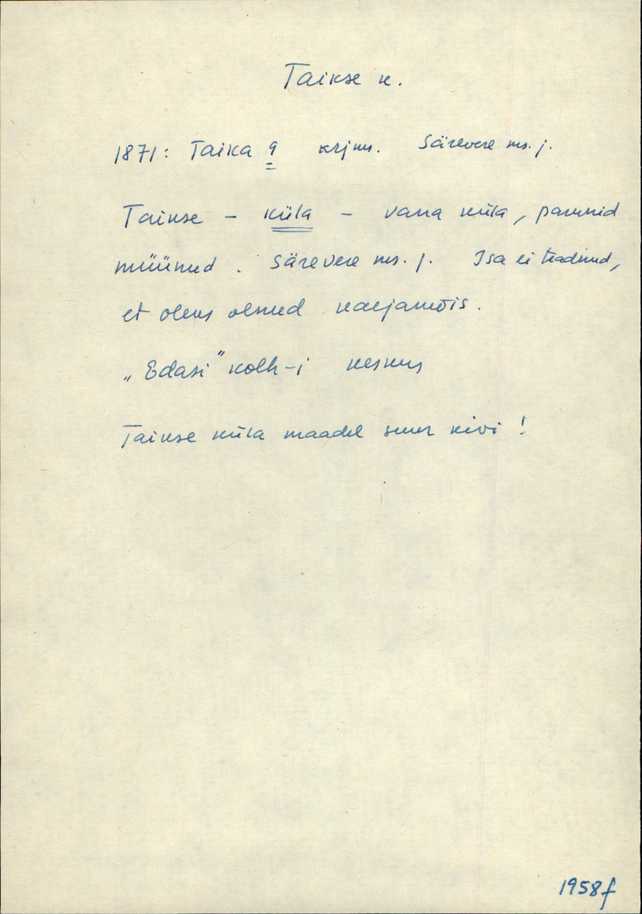 Taikse k.
1871: Taika 9 krjm. Särevere ms. j.
Taikse – küla – vana küla, parunid
müünud. Särevere ms. j. Isa ei teadnud,
et oleks olnud karjamõis.
„Edasi” kolh-i keskus
Taikse küla maadel suur kivi!
1958f